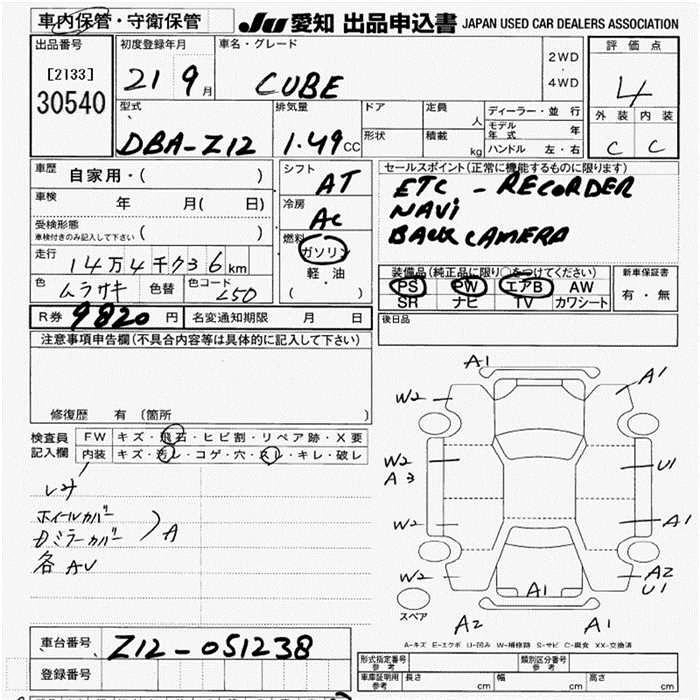 車内保管・守衛保管 Ju 愛知 出品申込書 JAPAN USED CAR DEALERS ASSOCIATION
出品番号 初度登録年月 車名・グレード 評価点
[2133] 21 9月 CUBE 2WD ・ 4WD 4
30540
型式 排気量 ドア 定員 人 ディーラー・並行 外装 内装
DBA-Z12 1.49CC 形状 積載 kg モデル年式 年 C C
ハンドル 左・右
車歴 自家用・( ) シフト AT セールスポイント(正常に機能するものに限ります)
車検 年 月( 日) 冷房 AC ETC - RECORDER
受検形態 NAVi
車検付きのみ記入して下さい ( ) 燃料 BACK CAMERA
走行 14万4千736km ガソリン
軽・油
( )
装備品(純正品に限り○をつけてください) 新車保証書
色 ムラサキ 色替 色コード L50 PS PW エアB AW 有・無
SR ナビ TV カワシート
R券 9820円 名変通知期限 月 日 後日品
注意事項申告欄(不具合内容等は具体的に記入して下さい)
修復歴 有 (箇所 )
検査員 FW キズ・飛石・ヒビ割・リペア跡・X要
記入欄 内装 キズ・汚レ・コゲ・穴・スレ・キレ・破レ
ホイールカバー
Dミラーカバー ) A
各AU
A1
W2 A1
W2 U1
A3
W2 A1
W2 A1 A2
U1
スペア
A2 A1
A-キズ E-エクボ U-凹み W-補修跡 S-サビ C-腐食 XX-交換済
車台番号 Z12-051238
登録番号
形式指定番号 参考 類別区分番号 参考
車庫証明用 参考 長さ cm 幅 cm 高さ cm